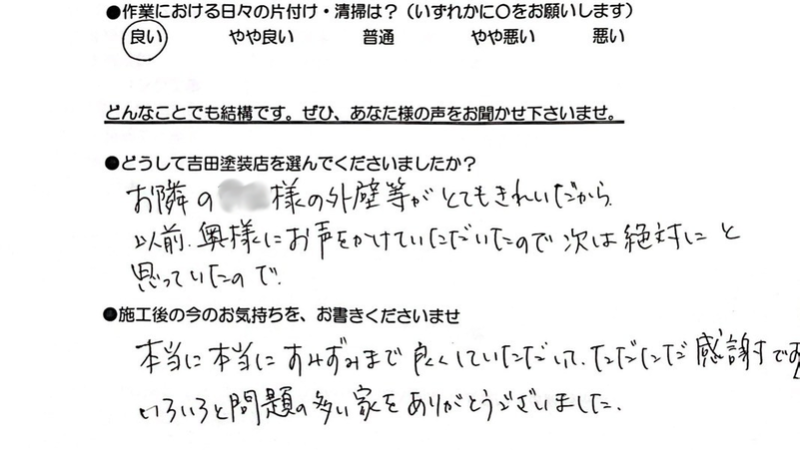 ●作業における日々の片付け・清掃は？（いずれかに〇をお願いします）
良い やや良い 普通 やや悪い 悪い
どんなことでも結構です。ぜひ、あなた様の声をお聞かせ下さいませ。
●どうして吉田塗装店を選んでくださいましたか？
お隣の 様の外壁等がとてもきれいだから。
以前、奥様にお声をかけていただいたので次は絶対にと
思っていたので。
●施工後の今のお気持ちを、お書きくださいませ
本当に本当にすみずみまで良くしていただいて、ただただ感謝です
いろいろと問題の多い家をありがとうございました。